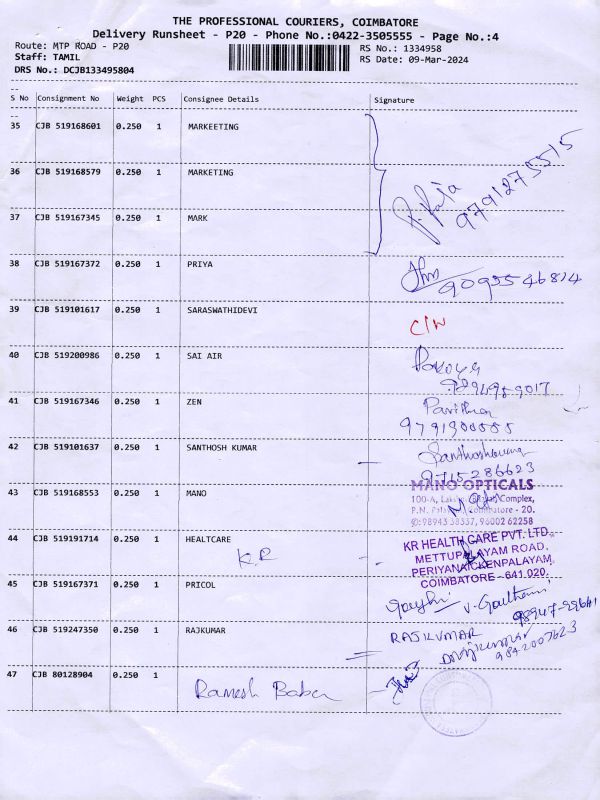 THE PROFESSIONAL COURIERS, COIMBATORE
Delivery Runsheet - P20 - Phone No.:0422-3505555 - Page No.:4
Route: MTP ROAD - P20
Staff: TAMIL
DRS No.: DCJB133495804
RS No.: 1334958
RS Date: 09-Mar-2024
S No Consignment No Weight PCS Consignee Details Signature
35 CJB 519168601 0.250 1 MARKEETING
36 CJB 519168579 0.250 1 MARKETING
9791275515
37 CJB 519167345 0.250 1 MARK
38 CJB 519167372 0.250 1 PRIYA
9095546814
39 CJB 519101617 0.250 1 SARASWATHIDEVI
C/N
40 CJB 519200986 0.250 1 SAI AIR
41 CJB 519167346 0.250 1 ZEN
Pavithra
42 CJB 519101637 0.250 1 SANTHOSH KUMAR
Santhoshkumar
9715286623
43 CJB 519168553 0.250 1 MANO
MANO OPTICALS
100-A, Complex,
P.N. Coimbatore - 20.
98943 38337, 96002 62258
44 CJB 519191714 0.250 1 HEALTCARE
K.R
KR HEALTH CARE PVT. LTD.,
METTUPALAYAM ROAD,
PERIYANAICKENPALAYAM,
COIMBATORE - 641 020.
45 CJB 519167371 0.250 1 PRICOL
V. Gowthami
46 CJB 519247350 0.250 1 RAJKUMAR
RAJKUMAR
9842007623
47 CJB 80128904 0.250 1
Ramesh Babu